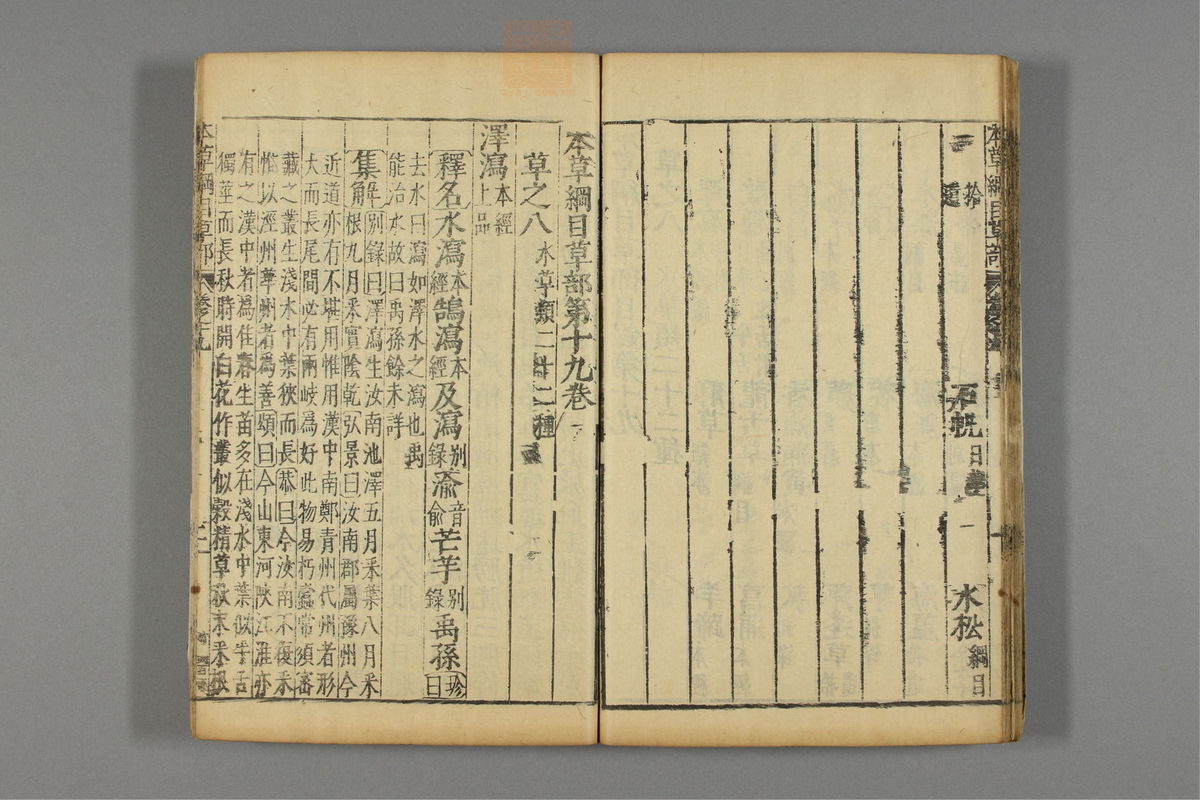 本草綱目草部
拾遺
石帆日華
水松綱目
本草綱目草部第十九卷
草之八 水草類二十二種
澤瀉本經上品
釋名水瀉本經鵠瀉本經及瀉別錄蕍音俞芒芋別錄禹孫珍曰
去水曰瀉如澤水之瀉也禹
能治水故曰禹孫餘未詳
集解別錄曰澤瀉生汝南池澤五月采葉八月采
根九月采實陰乾弘景曰汝南郡屬豫州今
近道亦有不堪用惟用漢中南鄭青州代州者形
大而長尾間必有兩岐為好此物易朽蠹常須密
藏之叢生淺水中葉狹而長恭曰今汝南不復采
惟以涇州華州者為善頌曰今山東河陝江淮亦
有之漢中者為佳春生苗多在淺水中葉似牛舌
獨莖而長秋時開白花作叢似穀精草秋末采根
本草綱目草部 卷十九